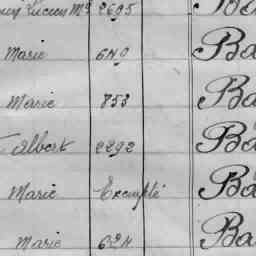 Lucien Md 2605 Ba
Marie 640 Ba
Marie 853 Ba
Albert 2292 Ba
Marie Exempté Ba
Marie 624 Ba